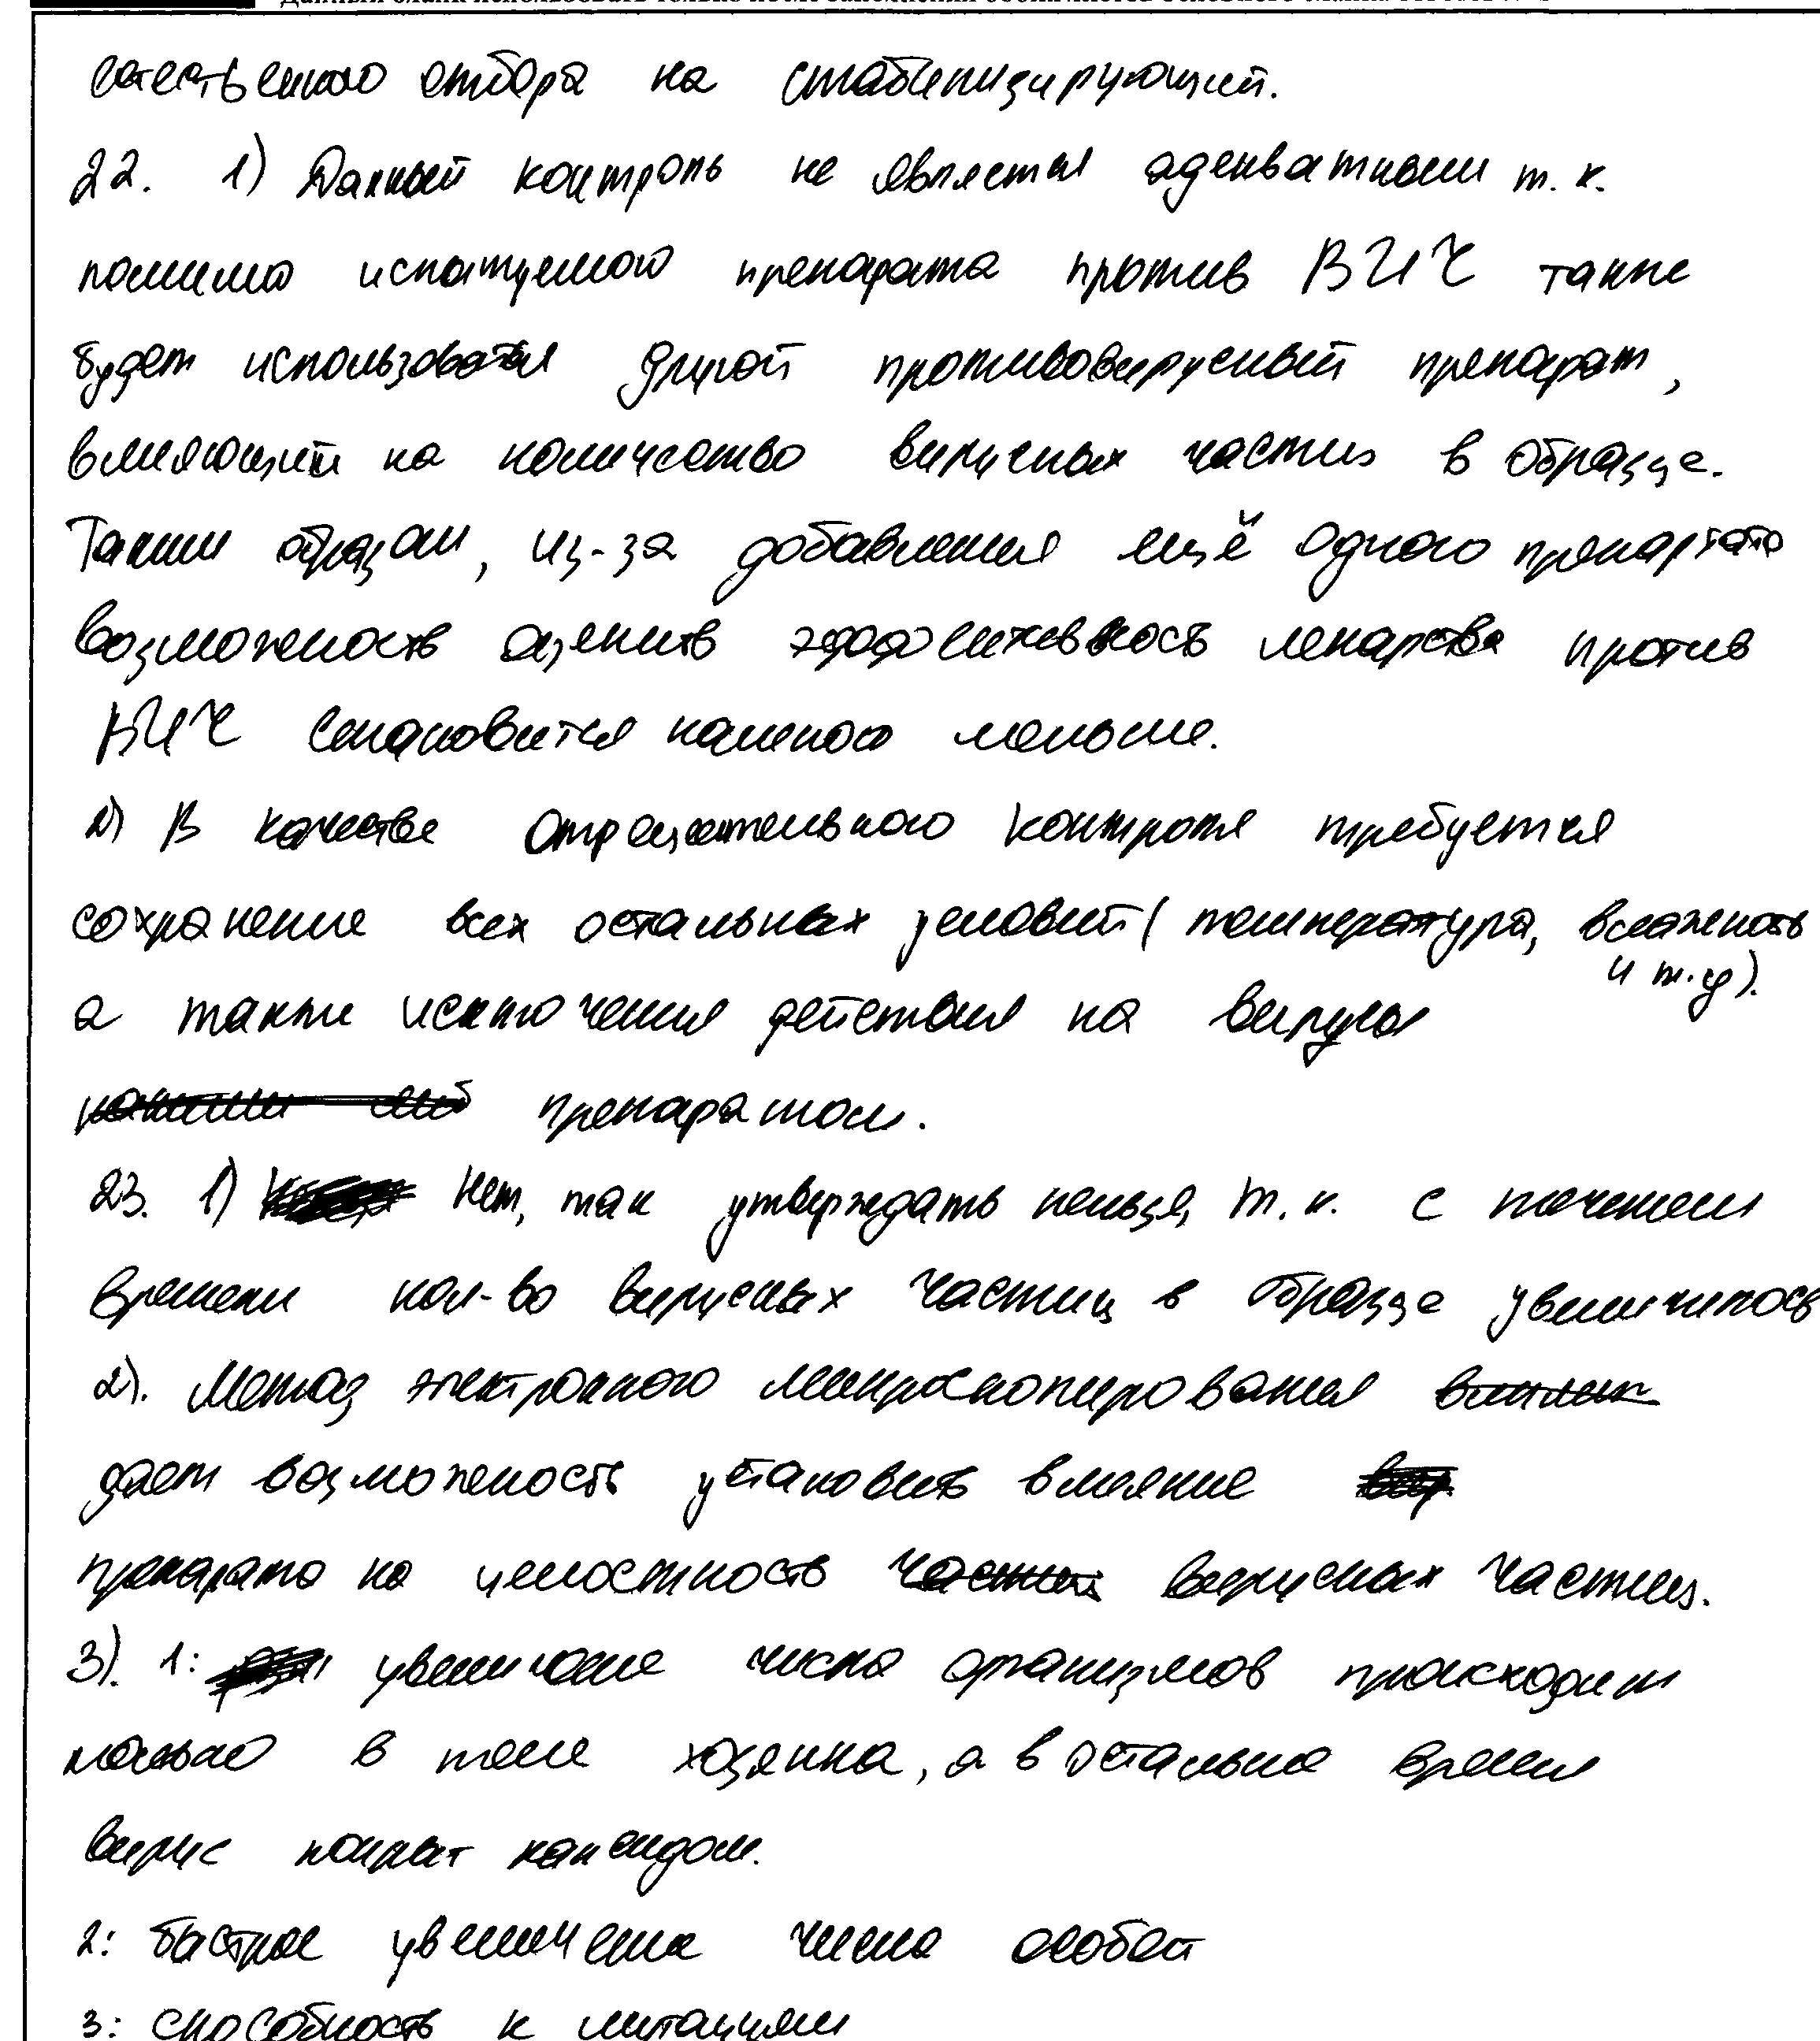 естественного отбора на стабилизирующий.
22. 1) Данный контроль не является адекватным т. к.
помимо испытуемого препарата против ВИЧ также
будет использоваться другой противовирусный препарат,
влияющий на количество вирусных частиц в образце.
Таким образом, из-за добавления ещё одного препартата
возможность оценить эффективность лекарства против
ВИЧ становится намного меньше.
2) В качестве отрицательного контроля требуется
сохранение всех остальных условий (температура, влажность
и т.д).
а также исключения действия на вирусы
препаратом.
23. 1) Нет, так утверждать нельзя, т. к. с течением
времени кол-во вирусных частиц в образце увеличилось
2). Метод электронного микроскопирования
дает возможность установить влияние
препарата на целостность вирусных частиц.
3). 1: увеличение числа организмов происходит
только в теле хозяина, а в остальное время
вирус покрыт капсидом.
2: быстрое увеличение числа особей
3: способность к мутациям